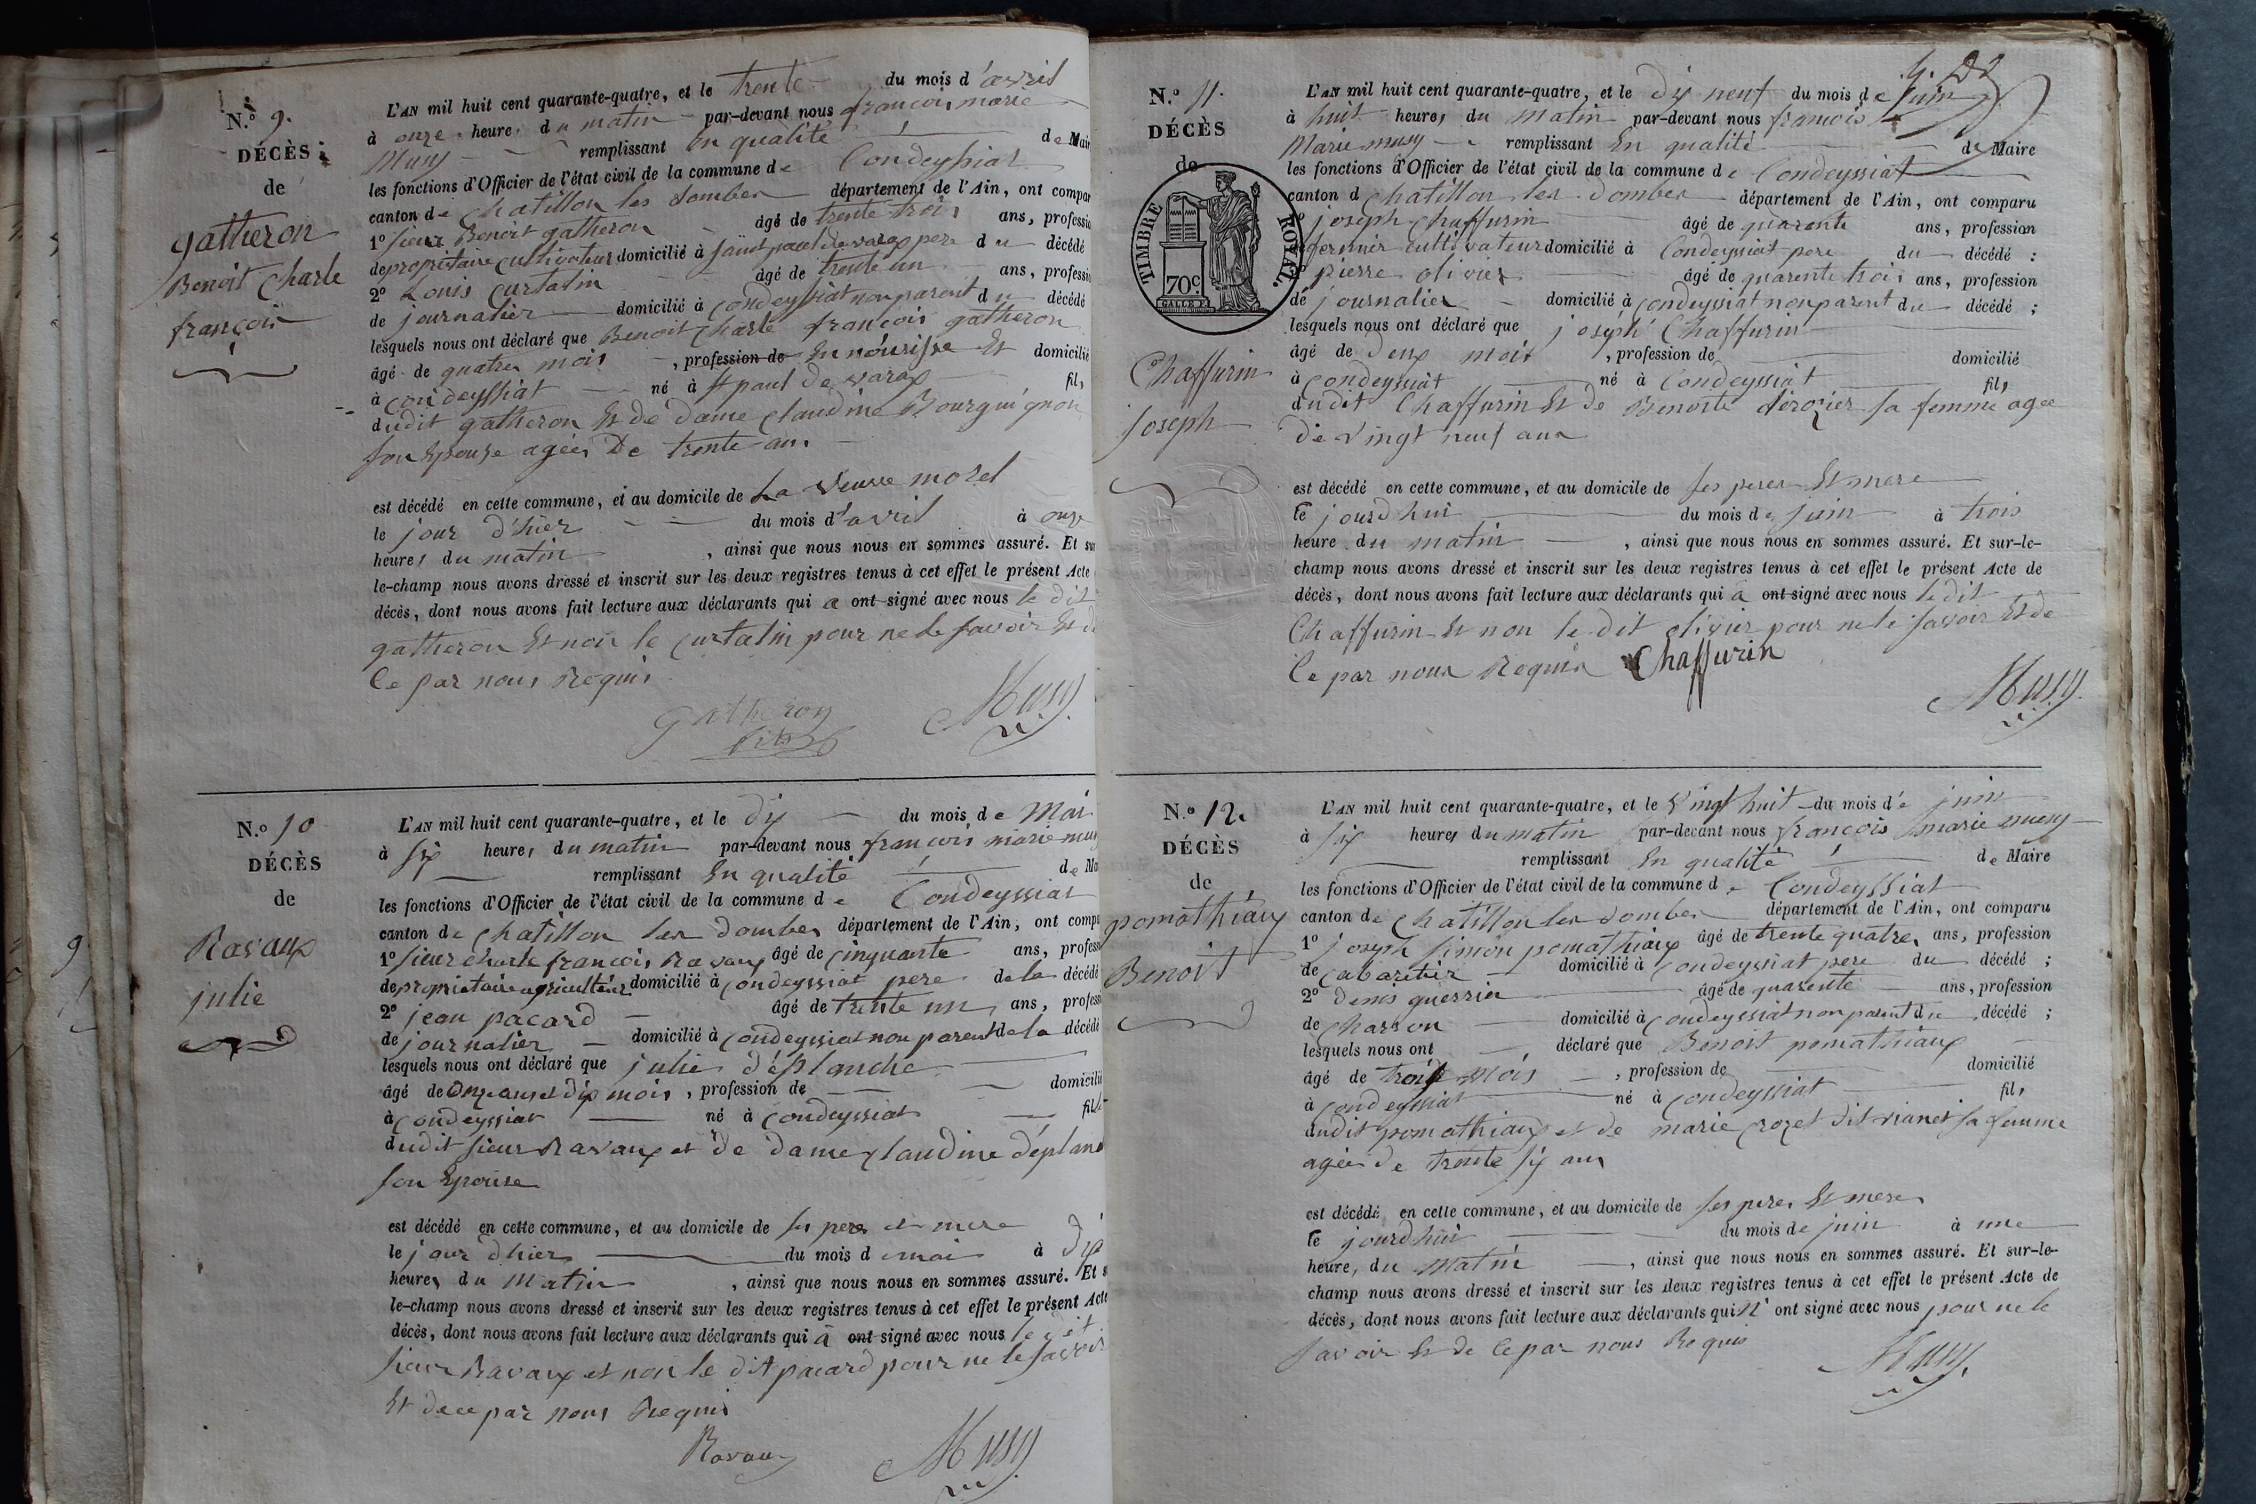 N.o 9.
DÉCÈS
de
gatheron
Benoit Charle
françois
L'AN mil huit cent quarante-quatre, et le trente du mois d'avril
à onze heures du matin par-devant nous françois marie
Musy remplissant En qualité de Mair
les fonctions d'Officier de l'état civil de la commune de Condeyssiat
canton de Chatillon les Dombes département de l'Ain, ont compar
1º sieur Benoit gatheron âgé de trente trois ans, professio
de propriétaire cultivateur domicilié à saint paul de varax pere du décédé
2º Louis Curtalin âgé de trente un ans, professi
de journalier domicilié à Condeyssiat non parent du décédé
lesquels nous ont déclaré que Benoit Charle françois gatheron
âgé de quatre mois, profession de En nourisse Et domicilié
à Condeyssiat né à st paul de varax fils
dudit gatheron Et de Dame Claudine Bourguignon
son Epouse agée De trente ans
est décédé en cette commune, et au domicile de La veuve morel
le jour d'hier du mois d'avril à onze
heures du matin, ainsi que nous nous en sommes assuré. Et sur
le-champ nous avons dressé et inscrit sur les deux registres tenus à cet effet le présent Acte
décès, dont nous avons fait lecture aux déclarants qui a ont signé avec nous le dit
gatheron Et non le Curtalin pour ne le savoir Et de
Ce par nous Requis
Gatheron
Musy
N.o 10
DÉCÈS
de
Ravaux
julie
L'AN mil huit cent quarante-quatre, et le dix du mois de Mai
à six heures du matin par-devant nous françois marie mus
remplissant En qualité de Ma
les fonctions d'Officier de l'état civil de la commune de Condeyssiat
canton de Chatillon les Dombes département de l'Ain, ont compa
1º sieur Charle françois Ravaux âgé de Cinquante ans, profess
de propriétaire agriculteur domicilié à Condeyssiat pere de la décédé
2º jean pacard âgé de trente un ans, profess
de journalier domicilié à Condeyssiat non parent de la décédé
lesquels nous ont déclaré que julie déplanche
âgé de onze ans et dix mois, profession de domicilié
à Condeyssiat né à Condeyssiat fille
dudit sieur Ravaux et de dame Claudine déplan
son Epouse
est décédé en cette commune, et au domicile de ses peres et mere
le jour d'hier du mois de mai à dix
heures du Matin, ainsi que nous nous en sommes assuré. Et s
le-champ nous avons dressé et inscrit sur les deux registres tenus à cet effet le présent Acte
décès, dont nous avons fait lecture aux déclarants qui à ont signé avec nous le dit
sieur Ravaux et non le dit pacard pour ne le savoir
Et de ce par nous Requis
Ravaux
Musy
N.o 11.
DÉCÈS
de
TIMBRE ROYAL.
70c.
Chaffurin
Joseph
L'AN mil huit cent quarante-quatre, et le dix neuf du mois de juin
à huit heures du matin par-devant nous françois
Marie musy remplissant En qualité de Maire
les fonctions d'Officier de l'état civil de la commune de Condeyssiat
canton d Chatillon les Dombes département de l'Ain, ont comparu
joseph Chaffurin âgé de quarente ans, profession
fermier cultivateur domicilié à Condeyssiat pere du décédé :
pierre olivier âgé de quarente trois ans, profession
de journalier domicilié à Condeyssiat non parent du décédé ;
lesquels nous ont déclaré que joseph Chaffurin
âgé de deux mois, profession de domicilié
à Condeyssiat né à Condeyssiat fils
dudit Chaffurin Et de Benoite dérozier sa femme agée
de vingt neuf ans
est décédé en cette commune, et au domicile de ses peres Et mere
le jourd'hui du mois de juin à trois
heure du matin, ainsi que nous nous en sommes assuré. Et sur-le-
champ nous avons dressé et inscrit sur les deux registres tenus à cet effet le présent Acte de
décès, dont nous avons fait lecture aux déclarants qui à ont signé avec nous le dit
Chaffurin Et non le dit olivier pour ne le savoir Et de
Ce par nous Requis Chaffurin
Musy
N.o 12.
DÉCÈS
de
pomathiaux
Benoit
L'AN mil huit cent quarante-quatre, et le vingt huit du mois de juin
à six heures du matin par-devant nous françois marie musy
remplissant En qualité de Maire
les fonctions d'Officier de l'état civil de la commune de Condeyssiat
canton de Chatillon les Dombes département de l'Ain, ont comparu
1º joseph simon pomathiaux âgé de trente quatre ans, profession
de Cabaretier domicilié à Condeyssiat pere du décédé ;
2º denis guerrier âgé de quarente ans, profession
de Charron domicilié à Condeyssiat non parent du décédé ;
lesquels nous ont déclaré que Benoit pomathiaux
âgé de trois mois, profession de domicilié
à Condeyssiat né à Condeyssiat fils
dudit pomathiaux et de marie Crozet dit vianet sa femme
agée de trente six ans
est décédé en cette commune, et au domicile de ses peres Et meres
le jourd'hui du mois de juin à une
heure, du Matin, ainsi que nous nous en sommes assuré. Et sur-le-
champ nous avons dressé et inscrit sur les deux registres tenus à cet effet le présent Acte de
décès, dont nous avons fait lecture aux déclarants qui n' ont signé avec nous pour ne le
savoir Et de Ce par nous Requis
Musy